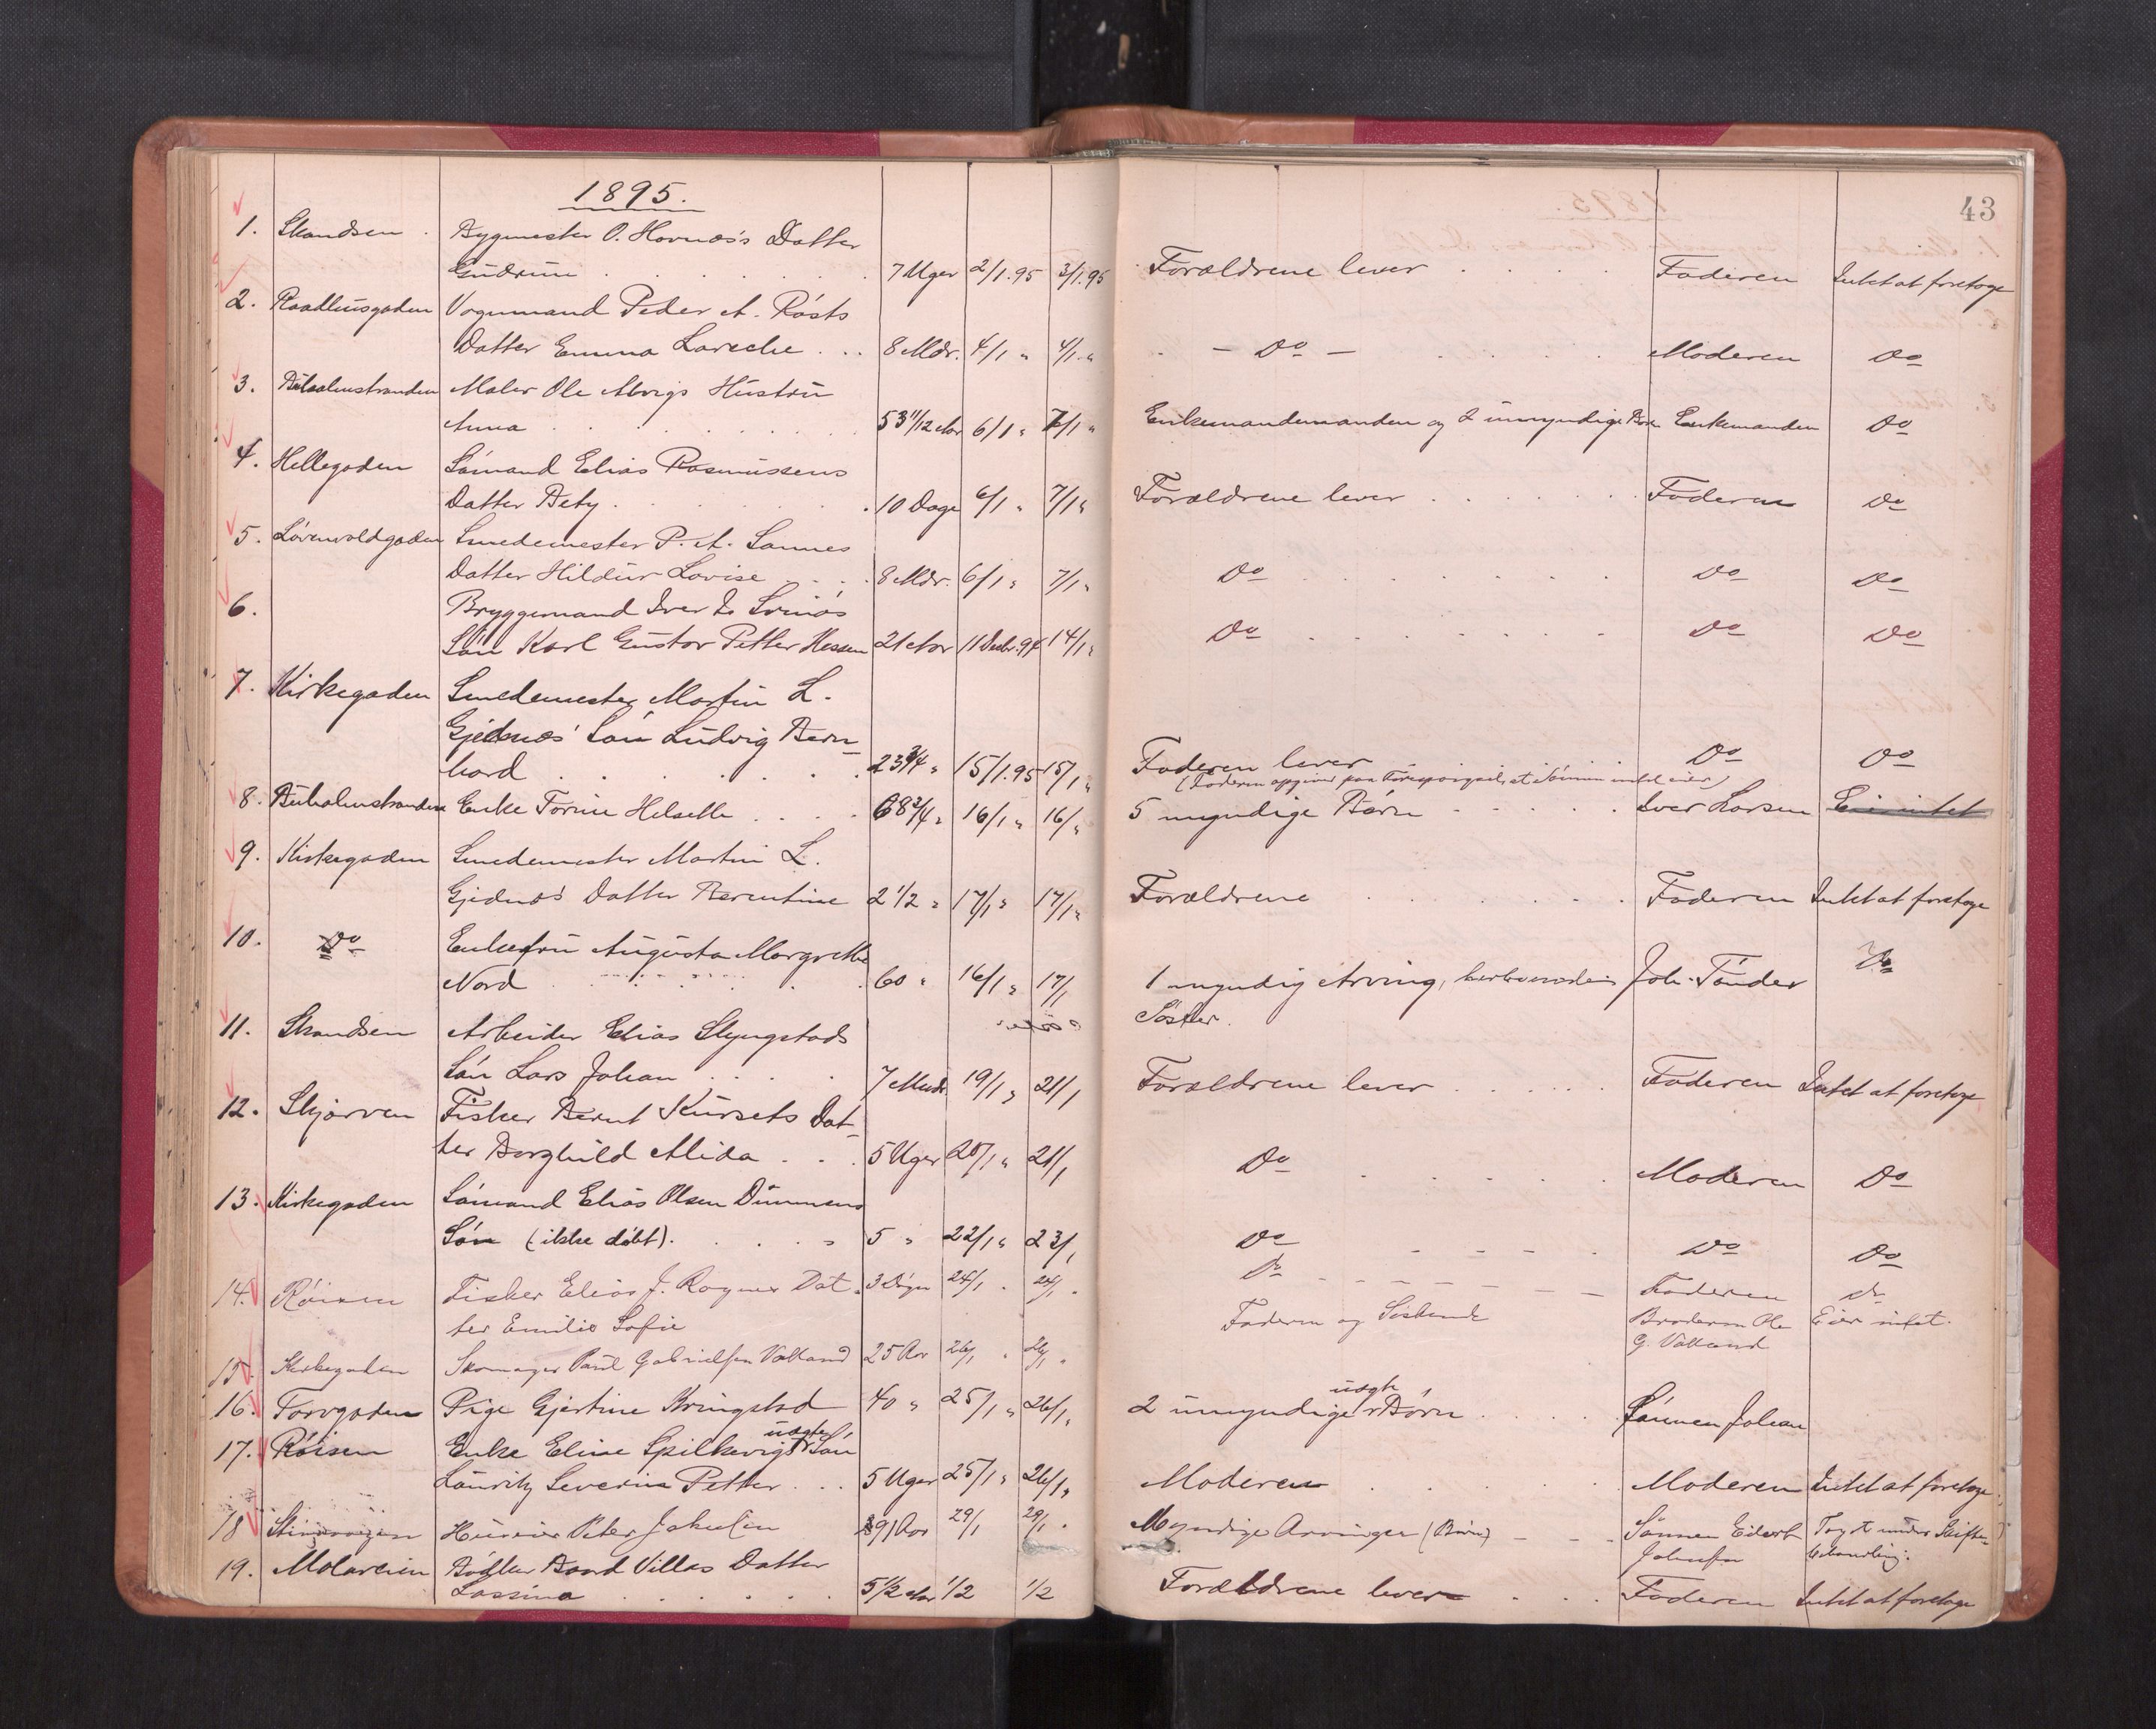 1895.
43
1. Skandsen . Bygmester O. Hovnæs's Datter
Gudrun . . . . . . 7 Uger 2/1.95 3/1.95 Forældrene lever . . . . Faderen Intet at foretage
2. Raadhusgaden Vognmand Peder A. Røsts
Datter Emma Loveche . . . 8 Mdr. 4/1 " 4/1. " – Do – . . . . Moderen Do
3. Buholmstranden Maler Ole Alvigs Hustru
Anna . . . . . . 53 11/12 Aar 6/1 " 7/1 " Enkemandemanden og 2 umyndige Børn Enkemanden Do
4. Hellegaden Sømand Elias Rasmussens
Datter Bety . . . . . 10 Dage 6/1 " 7/1 " Forældrene lever . . . . . Faderen Do
5. Løvenvoldgaden Smedemester P. A. Sannes
Datter Hildur Lovise . . . 8 Mdr. 6/1 " 7/1 " Do . . . . . . Do Do
6. Bryggemand Iver I.
Søn Karl Gustav Petter Hessen 21 Aar 11 Decbr. 94 14/1 " Do . . . . . . Do Do
7. Kirkegaden Smedemester Martin L.
Gjednæs' Søn Ludvig Bern-
hard . . . . . . . 23 3/4 " 15/1.95 15/1 " Faderen lever . . . . . Do Do
(Faderen opgiver paa Forespørgsel, at Sønnen intet eier)
8. Buholmstranden Enke Torine Helsette . . . . 68 3/4 " 16/1 " 16/1 " 5 myndige Børn . . . . . Iver Larsen Eier intet
9. Kirkegaden Smedemester Martin L.
Gjednæs' Datter Berentine 2 1/2 " 17/1 " 17/1 " Forældrene . . . . . Faderen Intet at foretage
10. Do Enkefru Augusta Margrethe
Nord . . . . . . 60 " 16/1 " 17/1 1 myndig Arving, herboende Joh. Tønder Do
Søster.
11. Skandsen Arbeider Elias Slyngstads
Søn Lars Johan . . . . 7 Mndr 19/1 " 21/1 Forældrene lever . . . . . Faderen Intet at foretage
12. Skjørven Fisker Bernt Kursets Dat-
ter Borghild Alida . . . 5 Uger 20/1 " 21/1 Do . . . . . Moderen Do
13. Kirkegaden Sømand Elias Olsen Dimmens
Søn (ikke døbt). . . . " 5 " 22/1 " 23/1 Do - - - . Do Do
14. Røisen Fisker Elias J. Rognes Dat- 3 Døgn 24/1 . 24/1 . Do – – – – – – – Faderen Do
ter Emilie Sofie
15. Kirkegaden Skomager Paul Gabrielsen Vatland 25 Aar 26/1 . 26/1 . Faderen og Søskende Broderen Ole Eier intet.
G. Vatland
16. Torvgaden Pige Gjertine Kringstad 40 " 25/1 " 26/1 " 2 umyndige uægte Børn . . . . Sønnen Johan
17. Røisen Enke Eline Spilkevigs uægte Søn
Lauritz Severin Petter . . . 5 Uger 25/1 " 26/1 " Moderen . . . . . Moderen Intet at foretage
18 Huseier Peter Jakobsen 91 Aar 29/1 29/1 . Myndige Arvinger (Børn) – – – Sønnen Edvart Tagt under Skifte-
behandling.
19. Molaveien Bødker Baard Villas Datter
Lassina . . . . . . 5 1/2 Aar 1/2 1/2 Forældrene lever . . . Faderen Intet at foretage